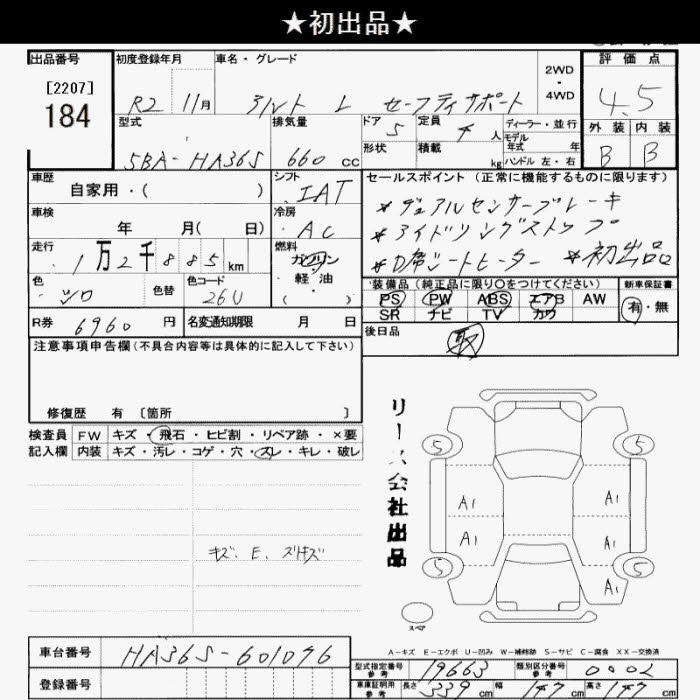 ★初出品★
出品番号 初度登録年月 車名・グレード 2WD・4WD 評価点
[2207]
184
R2 11月 アルト L セーフティサポート 4.5
型式 排気量 ドア 5 定員 4 人 ディーラー・並行 外装 内装
モデル年式 年
5BA-HA36S 660 cc 形状 積載 kg ハンドル 左・右 B B
車歴 シフト セールスポイント (正常に機能するものに限ります)
自家用・( ) IAT
*デュアルセンサーブレーキ
車検 冷房
年 月( 日) AC
*アイドリングストップ
走行 燃料
1万2千885km ガソリン・軽油・( )
*D席シートヒーター *初出品
色 色替 色コード
シロ 26U
装備品 (純正品に限り○をつけてください) 新車保証書
PS PW ABS エアB AW 有・無
SR ナビ TV カワ
R券 6960 円 名変通知期限 月 日
後日品 取
注意事項申告欄(不具合内容等は具体的に記入して下さい)
修復歴 有 〔箇所 〕
検査員 FW キズ・飛石・ヒビ割・リペア跡・×要
記入欄 内装 キズ・汚レ・コゲ・穴・スレ・キレ・破レ
リース会社出品
5 5
A1 A1
A1 A1
5 A1 5
キズ、E、スリキズ
スペア
A-キズ E-エクボ U-凹み W-補修跡 S-サビ C-腐食 XX-交換済
車台番号 HA36S-601096
型式指定番号 参考 19663 類別区分番号 参考 0002
登録番号
車庫証明用 参考 長さ 339 cm 幅 147 cm 高さ 147 cm